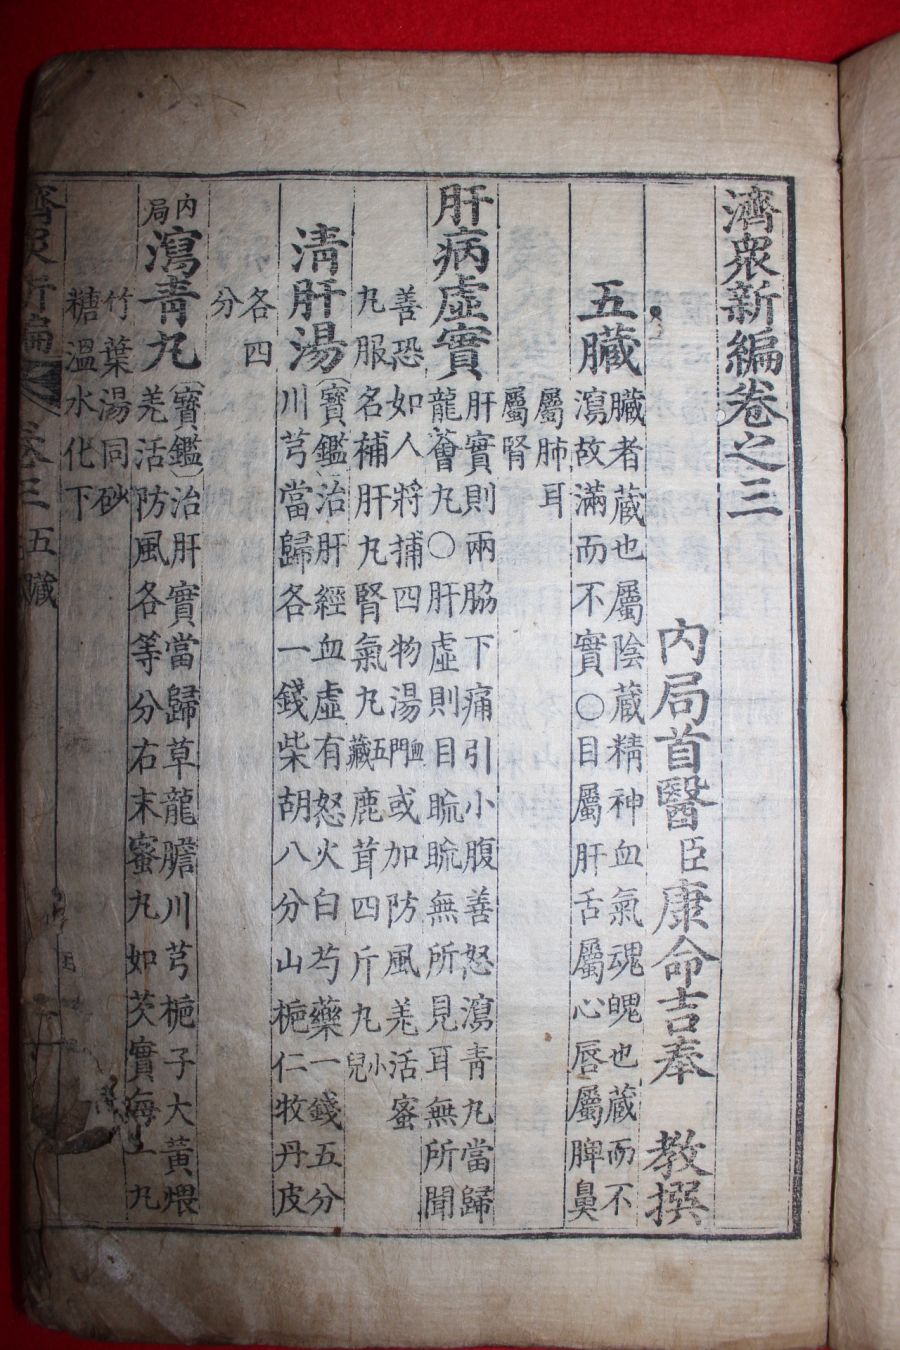 濟衆新編卷之三
內局首醫臣康命吉奉 教撰
五臟
臟者藏也屬陰藏精神血氣魂魄也藏而不
瀉故滿而不實○目屬肝舌屬心唇屬脾鼻
屬肺耳
屬腎
肝病虛實
肝實則兩脇下痛引小腹善怒瀉青丸當歸
龍薈丸○肝虛則目䀮䀮無所見耳無所聞
善恐如人將捕四物湯血門或加防風羌活蜜
丸服名補肝丸腎氣丸五臟鹿茸四斤丸小兒
清肝湯
(寶鑑)治肝經血虛有怒火白芍藥一錢五分
川芎當歸各一錢柴胡八分山梔仁牧丹皮
各四
分
內局
瀉青丸
(寶鑑)治肝實當歸草龍膽川芎梔子大黃煨
羌活防風各等分右末蜜丸如芡實每一丸
竹葉湯同砂
糖溫水化下
濟衆新編 卷三 五臟